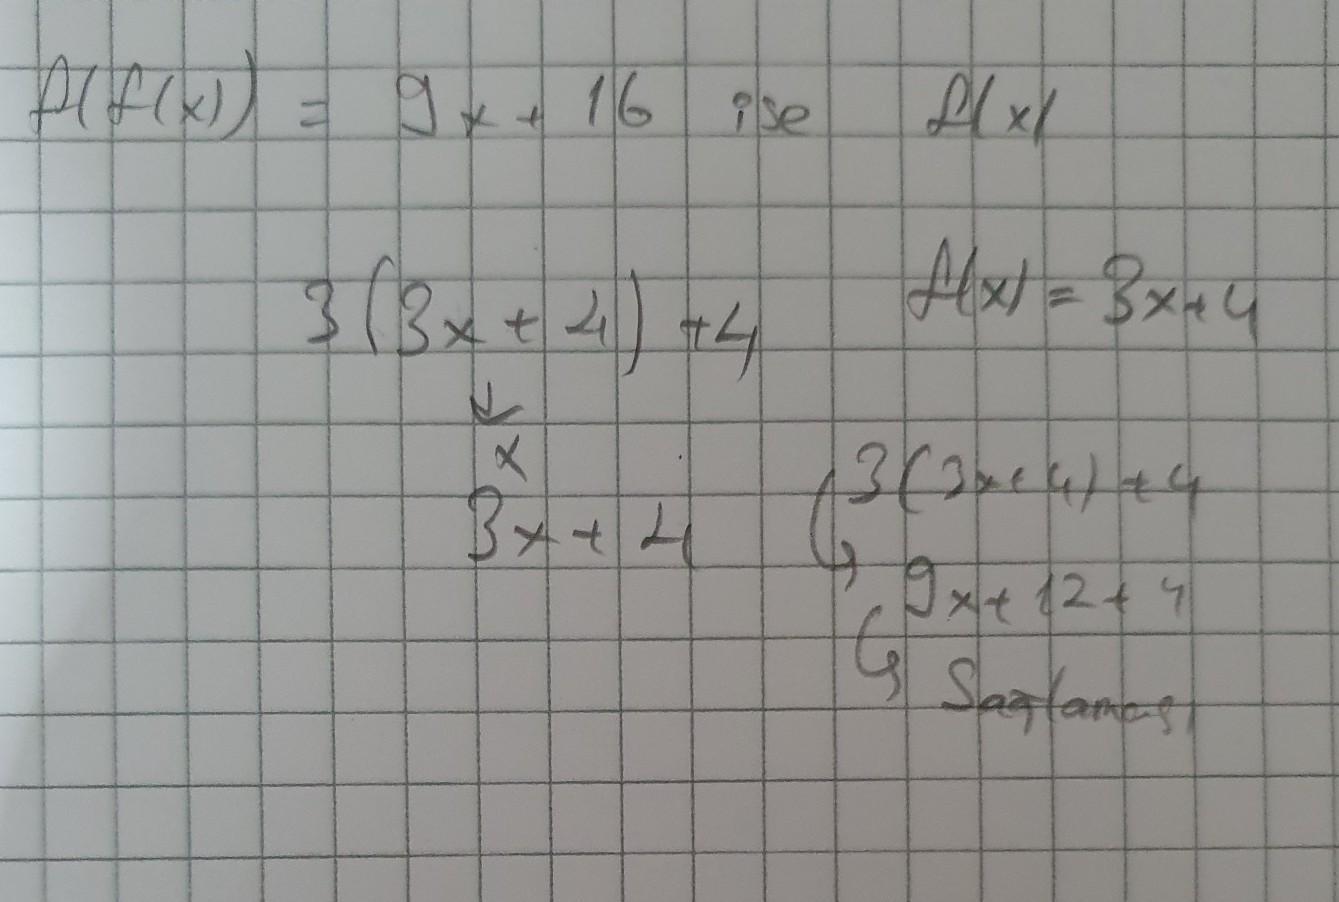 f(f(x)) = 9x + 16 ise f(x)
3(3x + 4) + 4
f(x) = 3x + 4
x
3x + 4
3(3x + 4) + 4
9x + 12 + 4
Sağlaması